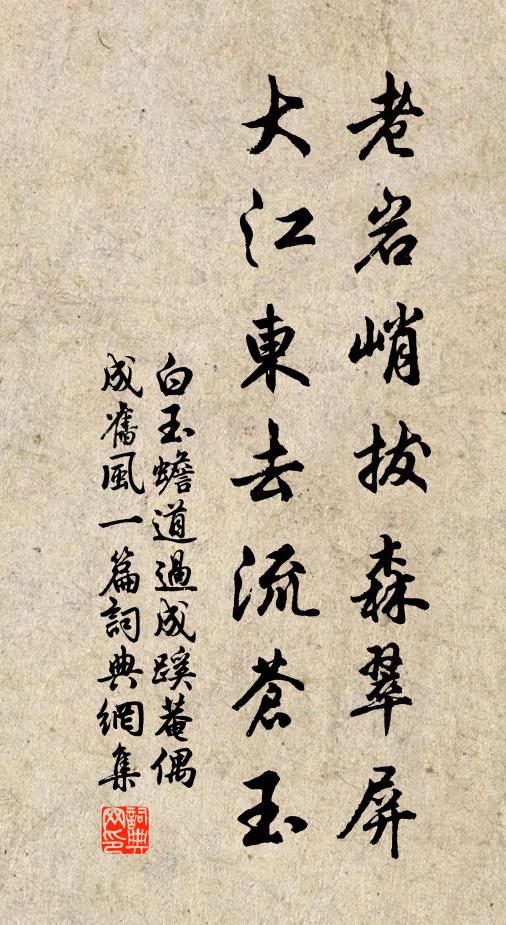 老岩峭拔森翠屏
大江東去流蒼玉
白玉蟾道過成蹊菴偶
成舊風一篇詞典網集
詞典網印